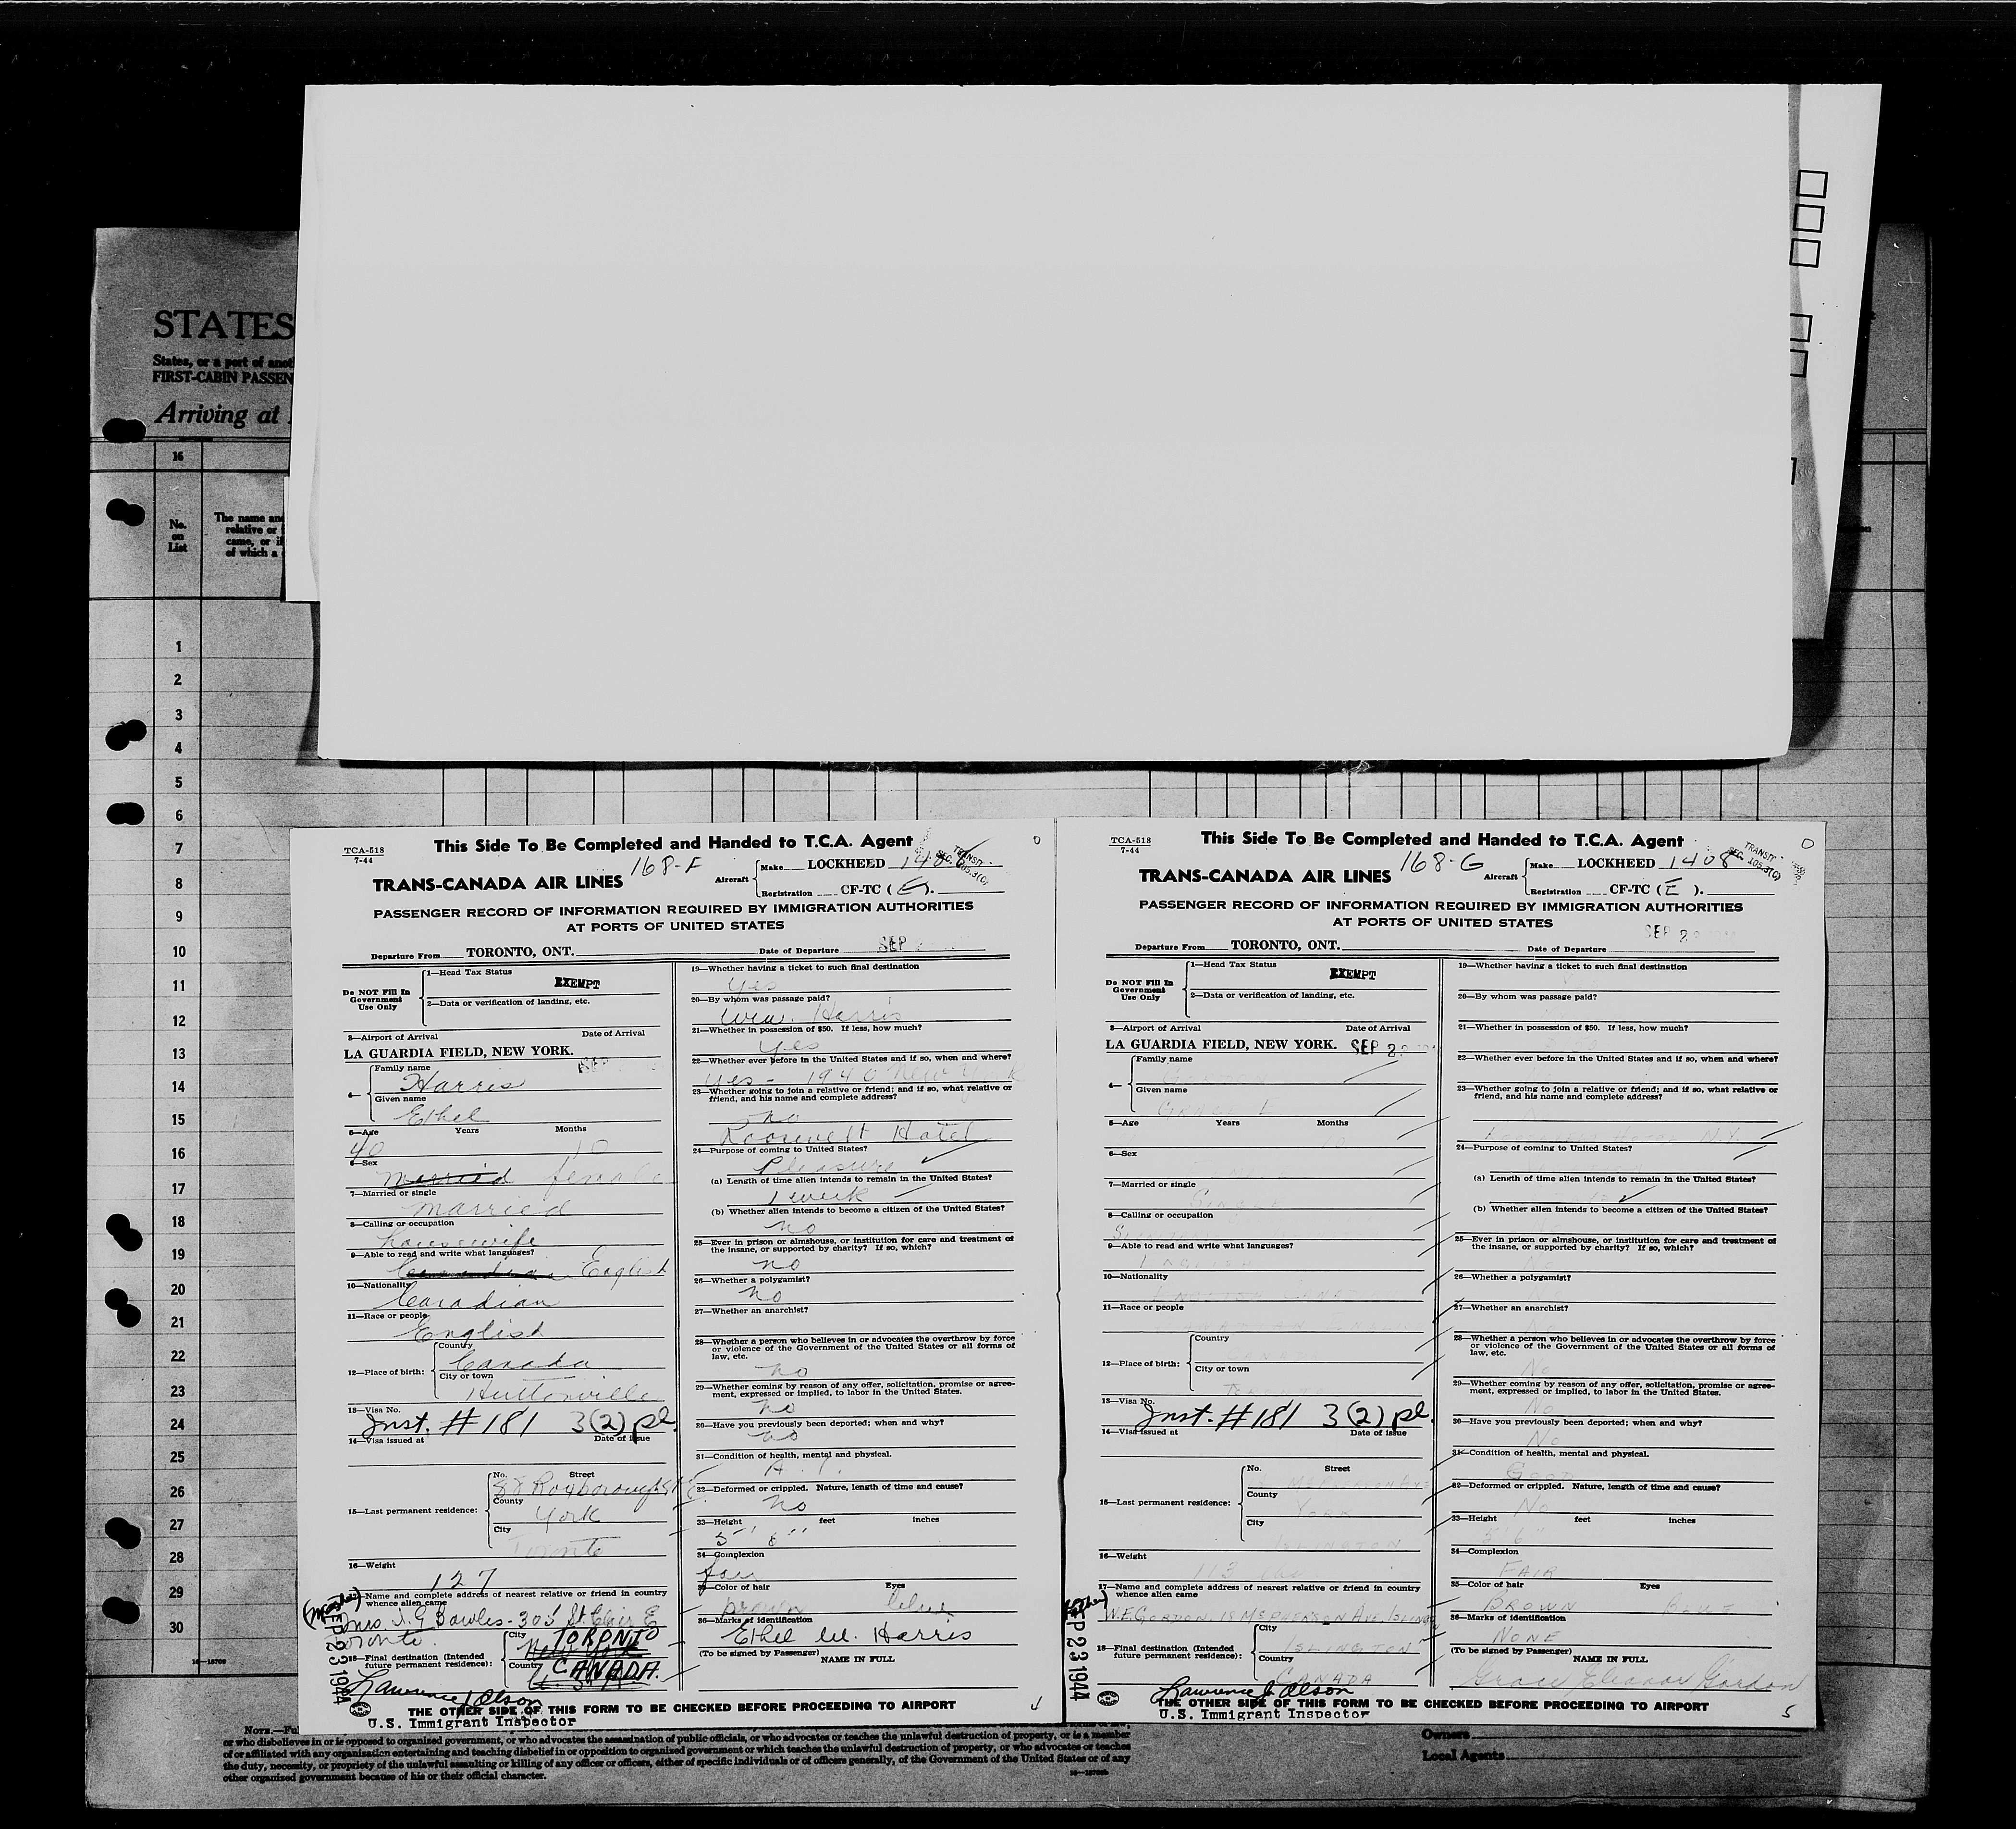 STATES
States, or a port of
FIRST-CABIN PASSEN
Arriving at
16
No.
on
List
The name
relative or
came, or if
of which a
1
2
3
4
5
6
7
8
9
10
11
12
13
14
15
16
17
18
19
20
21
22
23
24
25
26
27
28
29
30
This Side To Be Completed and Handed to T.C.A. Agent
TCA-518
7-44
168-F
TRANS-CANADA AIR LINES
Aircraft
Make LOCKHEED 1408
Registration CF-TC (E).
TRANSIT
SEC. 105.3(C)
PASSENGER RECORD OF INFORMATION REQUIRED BY IMMIGRATION AUTHORITIES
AT PORTS OF UNITED STATES
Departure From TORONTO, ONT. Date of Departure SEP
Do NOT Fill In
Government
Use Only
1—Head Tax Status
EXEMPT
2—Data or verification of landing, etc.
3—Airport of Arrival Date of Arrival
LA GUARDIA FIELD, NEW YORK. SEP
4—
Family name
Harris
Given name
Ethel
5—Age Years Months
40 10
6—Sex
married female
7—Married or single
Married
8—Calling or occupation
housewife
9—Able to read and write what languages?
Canadian English
10—Nationality
Canadian
11—Race or people
English
12—Place of birth:
Country
Canada
City or town
Huttonville
13—Visa No.
Inst. #181 3(2) pl.
14—Visa issued at Date of issue
15—Last permanent residence:
No. Street
88 Roxborough St E
County
York
City
Toronto
16—Weight
127
17—Name and complete address of nearest relative or friend in country
whence alien came
Mrs. J. G Bowles - 305 St. Clair E
Toronto.
18—Final destination (Intended
future permanent residence):
City TORONTO
New York
Country CANADA.
SEP 23 1944
Lawrence J Olson
THE OTHER SIDE OF THIS FORM TO BE CHECKED BEFORE PROCEEDING TO AIRPORT
U.S. Immigrant Inspector
19—Whether having a ticket to such final destination
Yes
20—By whom was passage paid?
Wm. Harris
21—Whether in possession of $50. If less, how much?
Yes
22—Whether ever before in the United States and if so, when and where?
Yes - 1940 New York
23—Whether going to join a relative or friend; and if so, what relative or
friend, and his name and complete address?
no
Roosevelt Hotel
24—Purpose of coming to United States?
Pleasure
(a) Length of time alien intends to remain in the United States?
1 week
(b) Whether alien intends to become a citizen of the United States?
no
25—Ever in prison or almshouse, or institution for care and treatment of
the insane, or supported by charity? If so, which?
no
26—Whether a polygamist?
no
27—Whether an anarchist?
28—Whether a person who believes in or advocates the overthrow by force
or violence of the Government of the United States or all forms of
law, etc.
no
29—Whether coming by reason of any offer, solicitation, promise or agree-
ment, expressed or implied, to labor in the United States.
no
30—Have you previously been deported; when and why?
no
31—Condition of health, mental and physical.
A. 1.
32—Deformed or crippled. Nature, length of time and cause?
no
33—Height feet inches
34—Complexion
fair
35—Color of hair Eyes
brown blue
36—Marks of identification
Ethel M. Harris
(To be signed by Passenger)
NAME IN FULL
This Side To Be Completed and Handed to T.C.A. Agent
TCA-518
7-44
168-G
TRANS-CANADA AIR LINES
Aircraft
Make LOCKHEED 1408
Registration CF-TC (E).
TRANSIT
SEC. 105.3(C)
PASSENGER RECORD OF INFORMATION REQUIRED BY IMMIGRATION AUTHORITIES
AT PORTS OF UNITED STATES
Departure From TORONTO, ONT. Date of Departure SEP 2
Do NOT Fill In
Government
Use Only
1—Head Tax Status
EXEMPT
2—Data or verification of landing, etc.
3—Airport of Arrival Date of Arrival
LA GUARDIA FIELD, NEW YORK. SEP 2
4—
Family name
Given name
GRACE E
5—Age Years Months
10
6—Sex
7—Married or single
SINGLE
8—Calling or occupation
9—Able to read and write what languages?
ENGLISH
10—Nationality
11—Race or people
12—Place of birth:
Country
City or town
13—Visa No.
Inst. #181 3(2) pl.
14—Visa issued at Date of issue
15—Last permanent residence:
No. Street
County
YORK
City
ISLINGTON
16—Weight
113 lbs
17—Name and complete address of nearest relative or friend in country
whence alien came
W.E. GORDON, 18 MCPHERSON AVE, ISLING
18—Final destination (Intended
future permanent residence):
City
ISLINGTON
Country
CANADA
SEP 23 1944
Lawrence J Olson
THE OTHER SIDE OF THIS FORM TO BE CHECKED BEFORE PROCEEDING TO AIRPORT
U.S. Immigrant Inspector
19—Whether having a ticket to such final destination
20—By whom was passage paid?
21—Whether in possession of $50. If less, how much?
22—Whether ever before in the United States and if so, when and where?
23—Whether going to join a relative or friend; and if so, what relative or
friend, and his name and complete address?
N.Y.
24—Purpose of coming to United States?
(a) Length of time alien intends to remain in the United States?
(b) Whether alien intends to become a citizen of the United States?
25—Ever in prison or almshouse, or institution for care and treatment of
the insane, or supported by charity? If so, which?
26—Whether a polygamist?
27—Whether an anarchist?
28—Whether a person who believes in or advocates the overthrow by force
or violence of the Government of the United States or all forms of
law, etc.
No
29—Whether coming by reason of any offer, solicitation, promise or agree-
ment, expressed or implied, to labor in the United States.
No
30—Have you previously been deported; when and why?
No
31—Condition of health, mental and physical.
GOOD
32—Deformed or crippled. Nature, length of time and cause?
No
33—Height feet inches
5' 6"
34—Complexion
FAIR
35—Color of hair Eyes
BROWN BLUE
36—Marks of identification
NONE
(To be signed by Passenger)
NAME IN FULL
Grace Eleanor Gordon
5
16—18700
NOTE.—Fu
or who disbelieves in or is opposed to organized government, or who advocates the assassination of public officials, or who advocates or teaches the unlawful destruction of property, or is a member
of or affiliated with any organization entertaining and teaching disbelief in or opposition to organized government or which teaches the unlawful destruction of property, or who advocates or teaches
the duty, necessity, or propriety of the unlawful assaulting or killing of any officer or officers, either of specific individuals or of officers generally, of the Government of the United States or of any
other organized government because of his or their official character.
Owners
Local Agents